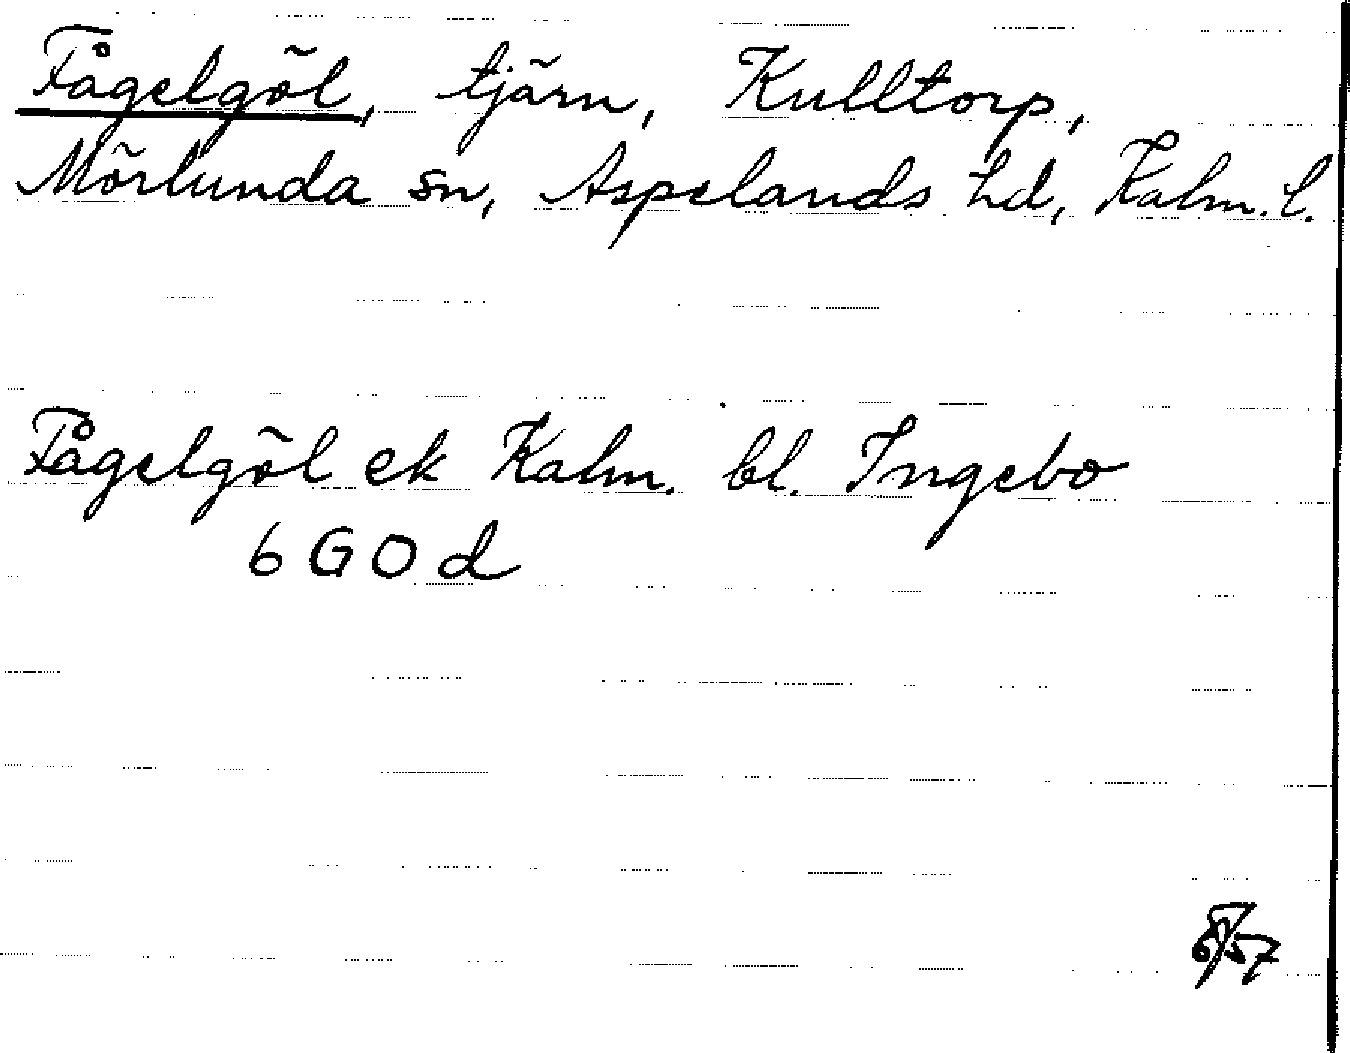 Fågelgöl, tjärn, Kulltorp,
Mörlunda sn, Aspelands hd, Kalm. l.
Fågelgöl ek Kalm. bl. Ingebo
6 G O d